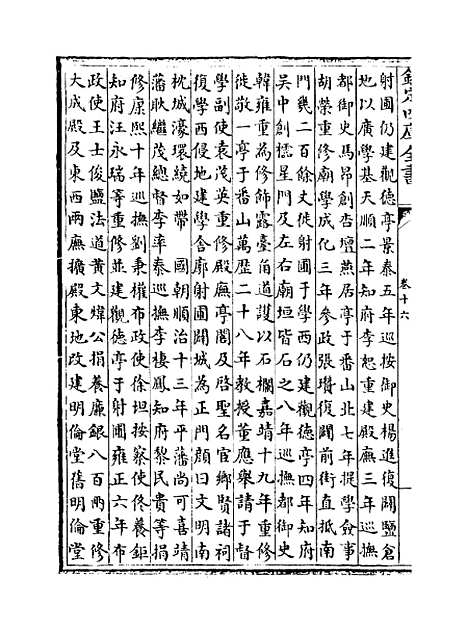 欽定四庫全書
卷十六
射圃仍建觀德亭景泰五年巡按御史楊進復闢鹽倉
地以廣學基天順二年知府李恕重建殿廡三年巡撫
都御史馬昂創杏壇燕居亭于番山北七年提學僉事
胡榮重修廟學成化三年參政張瓚復闢前街直抵南
門幾二百餘丈徙射圃于學西仍建觀德亭四年知府
吳中創櫺星門及左右廟垣皆石之八年巡撫都御史
韓雍重為修飾露臺甬道護以石欄嘉靖十九年重修
徙敬一亭于番山萬歷二十八年教授董應舉請于督
學副使袁茂英重修殿廡亭閣及啓聖名宦鄉賢諸祠
復學西侵地建學舍廓射圃闢城為正門顔曰文明南
枕城濠環繞如帶　國朝順治十三年平藩尚可喜靖
藩耿繼茂總督李率泰巡撫李棲鳳知府黎民貴等捐
修康熙十年巡撫劉秉權布政使徐坦按察使佟養鉅
知府汪永瑞等重修並建觀德亭于射圃雍正六年布
政使王士俊鹽法道黃文煒公捐養廉銀八百兩重修
大成殿及東西兩廡擴殿東地改建明倫堂舊明倫堂